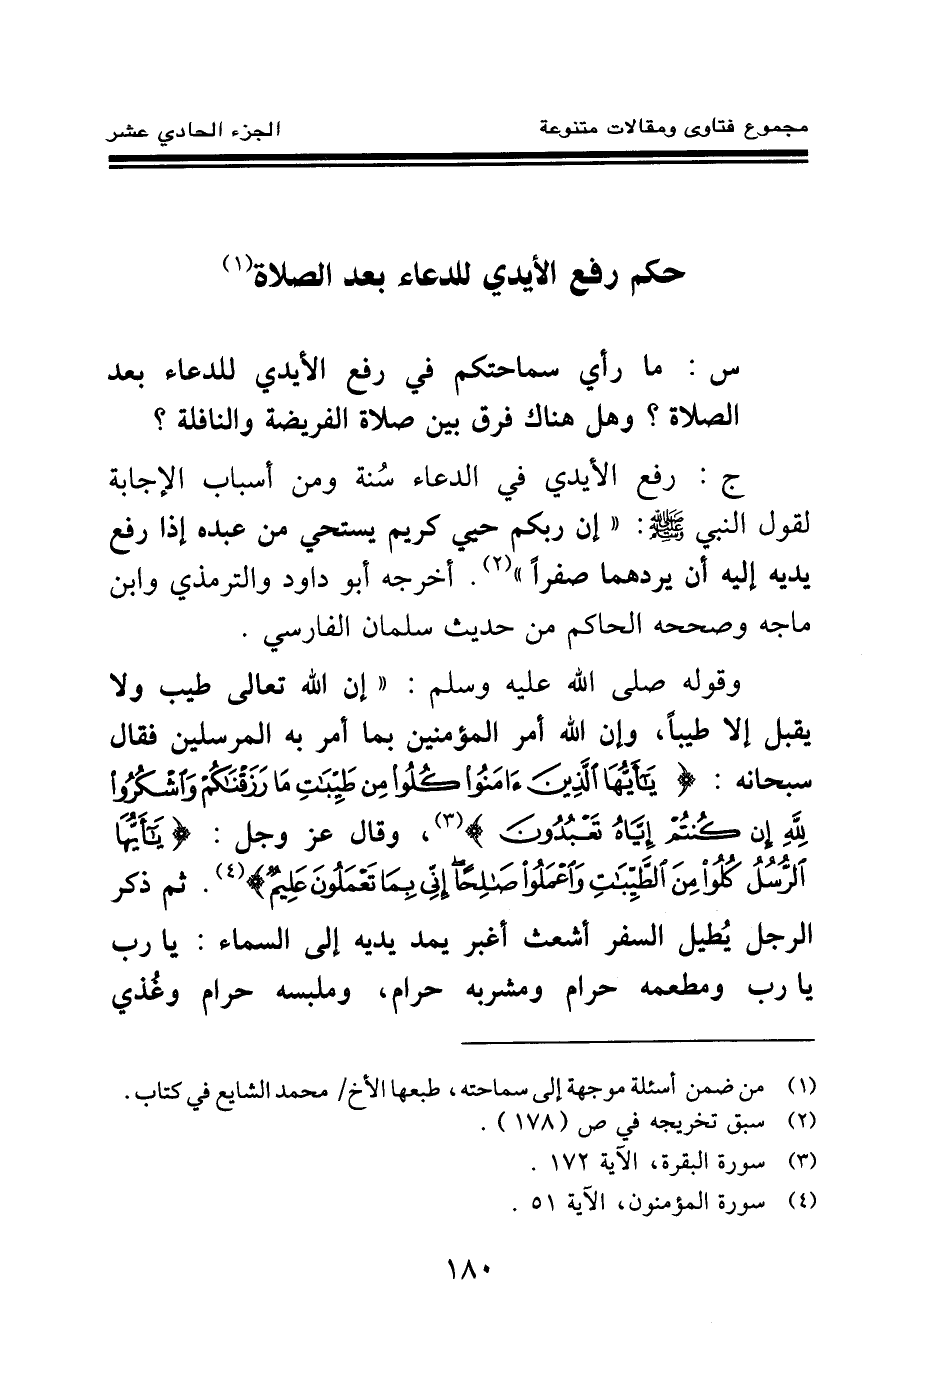 مجموع فتاوى ومقالات متنوعة الجزء الحادي عشر
حكم رفع الأيدي للدعاء بعد الصلاة(١)
س : ما رأي سماحتكم في رفع الأيدي للدعاء بعد
الصلاة ؟ وهل هناك فرق بين صلاة الفريضة والنافلة ؟
ج : رفع الأيدي في الدعاء سُنة ومن أسباب الإجابة
لقول النبي ﷺ: « إن ربكم حيي كريم يستحي من عبده إذا رفع
يديه إليه أن يردهما صفراً »(٢). أخرجه أبو داود والترمذي وابن
ماجه وصححه الحاكم من حديث سلمان الفارسي .
وقوله صلى الله عليه وسلم : « إن الله تعالى طيب ولا
يقبل إلا طيباً، وإن الله أمر المؤمنين بما أمر به المرسلين فقال
سبحانه : ﴿ يَٰٓأَيُّهَا ٱلَّذِينَ ءَامَنُوا۟ كُلُوا۟ مِن طَيِّبَٰتِ مَا رَزَقْنَٰكُمْ وَٱشْكُرُوا۟
لِلَّهِ إِن كُنتُمْ إِيَّاهُ تَعْبُدُونَ ﴾(٣)، وقال عز وجل : ﴿ يَٰٓأَيُّهَا
ٱلرُّسُلُ كُلُوا۟ مِنَ ٱلطَّيِّبَٰتِ وَٱعْمَلُوا۟ صَٰلِحًا ۖ إِنِّى بِمَا تَعْمَلُونَ عَلِيمٌ ﴾(٤). ثم ذكر
الرجل يُطيل السفر أشعث أغبر يمد يديه إلى السماء : يا رب
يا رب ومطعمه حرام ومشربه حرام، وملبسه حرام وغُذي
(١) من ضمن أسئلة موجهة إلى سماحته، طبعها الأخ/ محمد الشايع في كتاب .
(٢) سبق تخريجه في ص (١٧٨) .
(٣) سورة البقرة، الآية ١٧٢ .
(٤) سورة المؤمنون، الآية ٥١ .
١٨٠